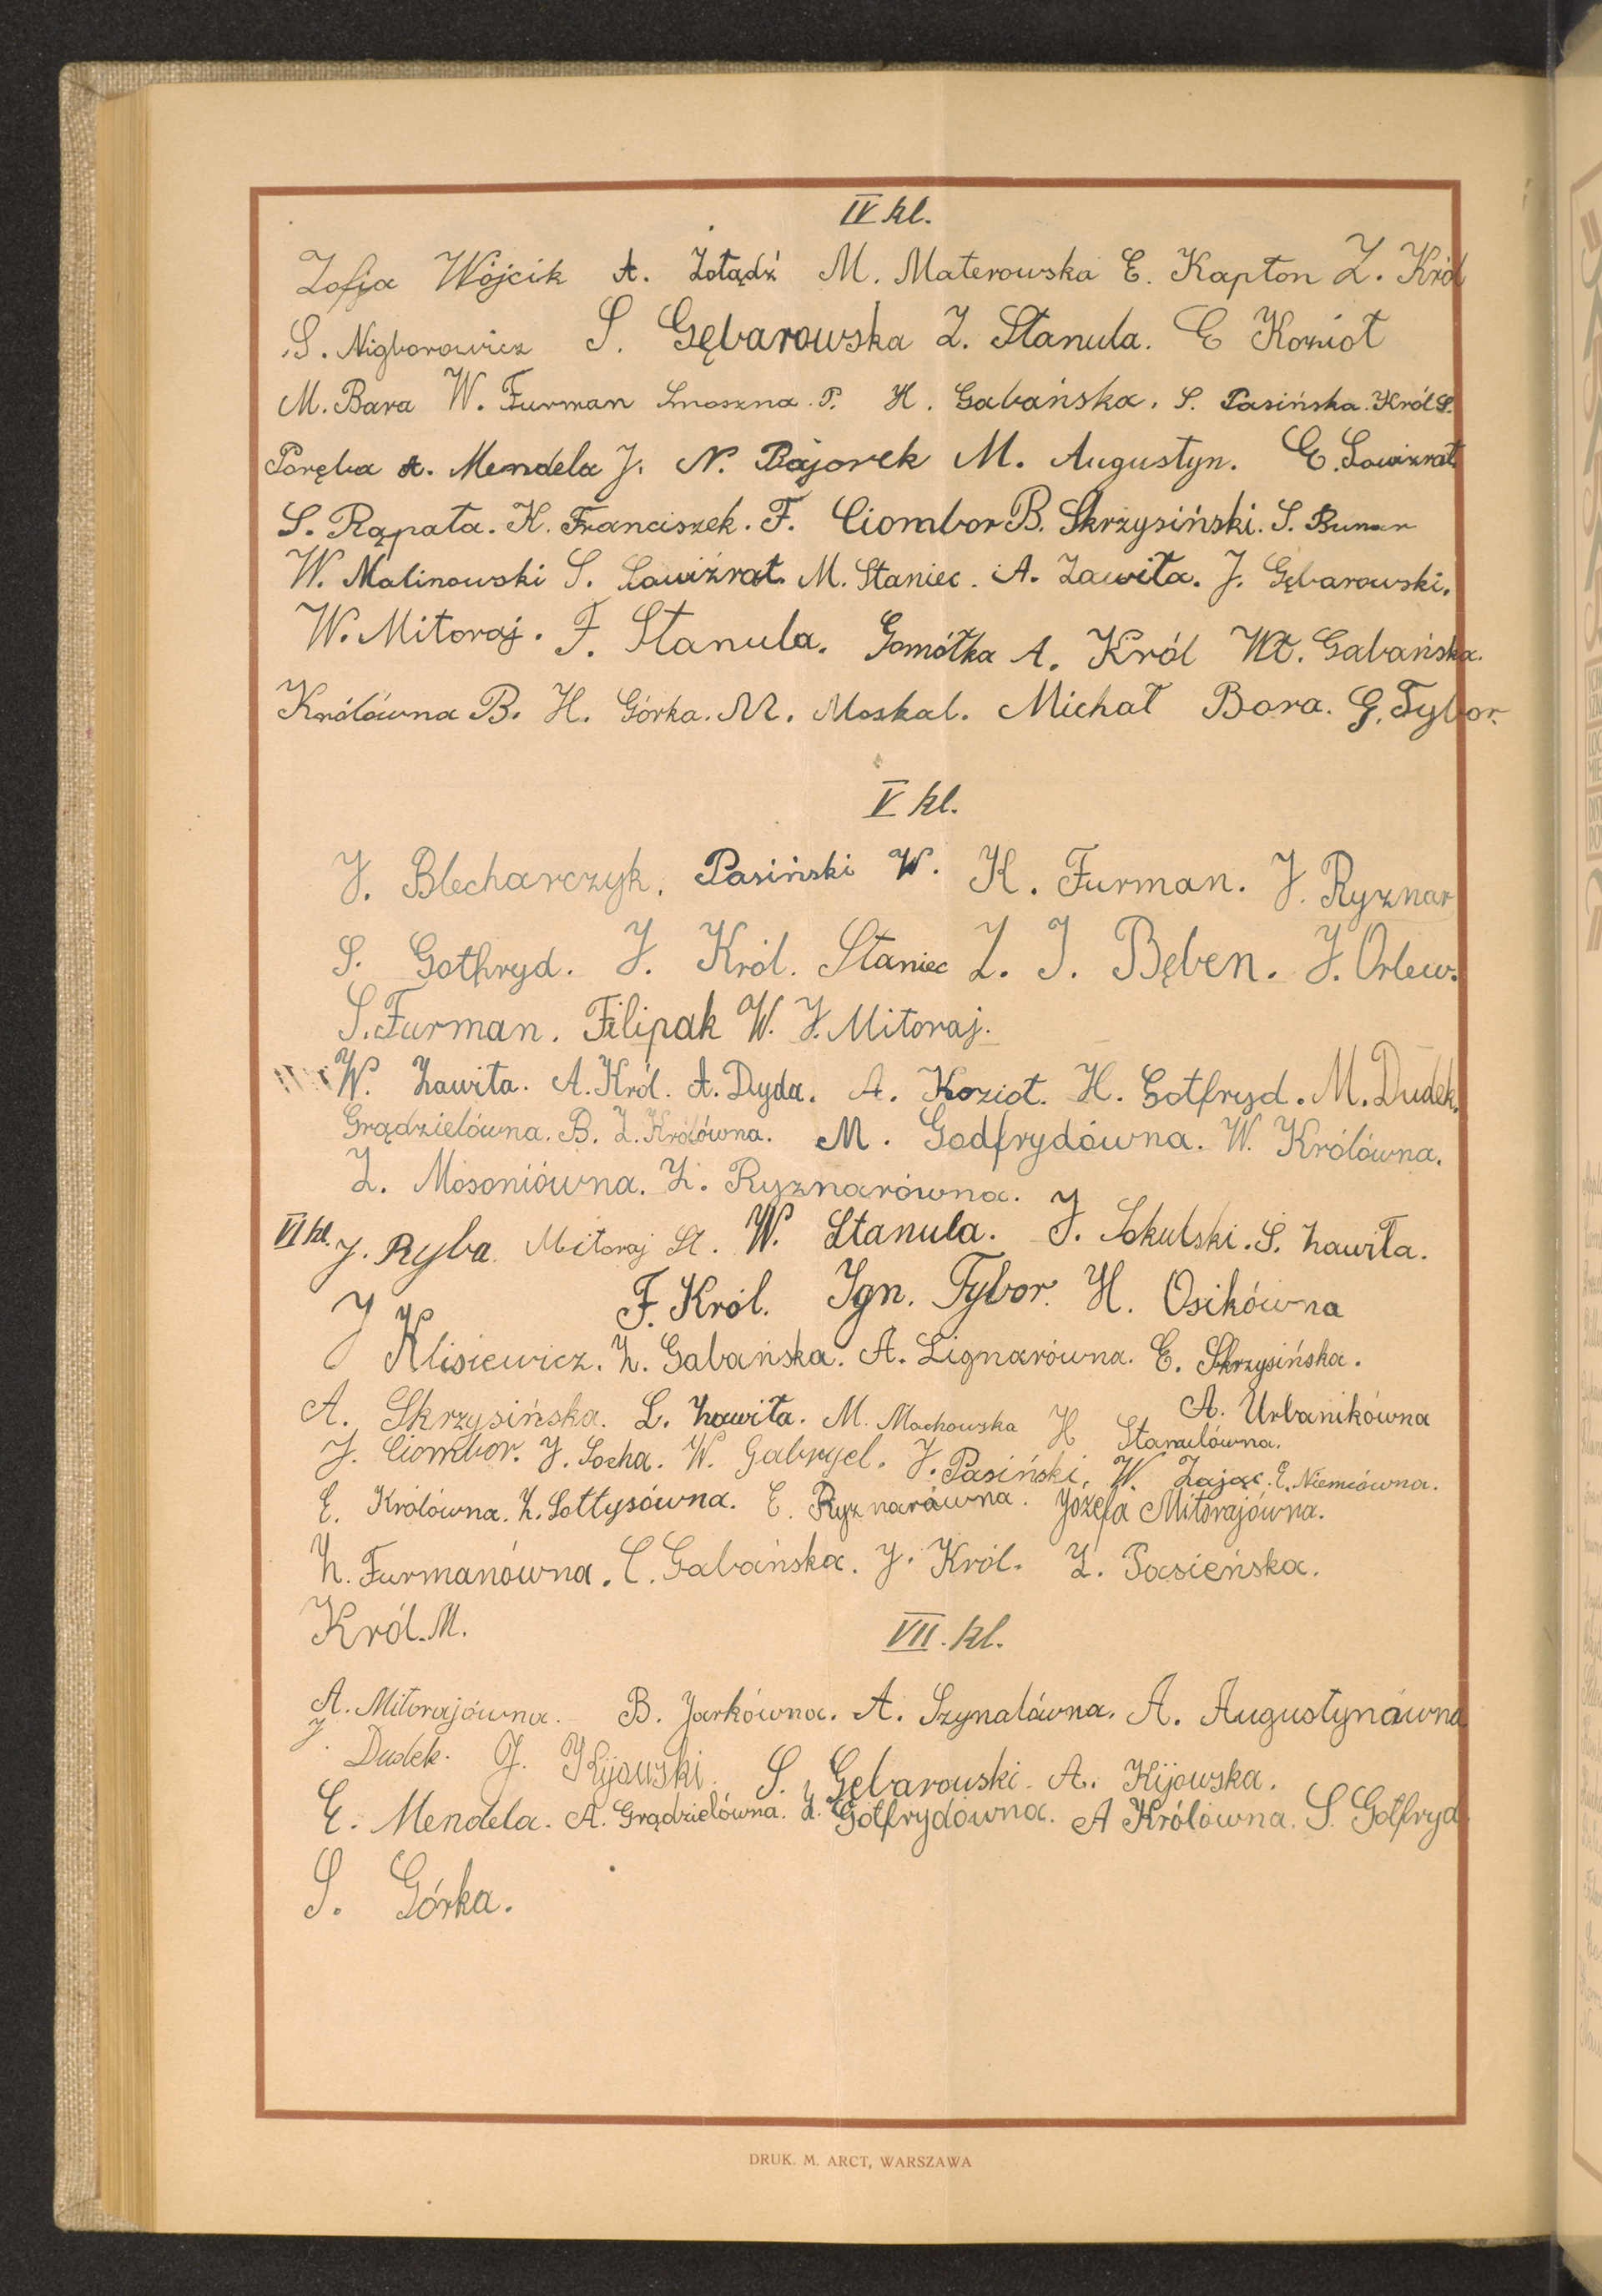 IV kl.
Zofja Wójcik A. Żołądź M. Materowska E. Kapłon Z. Król
S. Nigborowicz S. Gębarowska Z. Stanula. E Kozioł
M. Bara W. Furman P. H. Gabańska. S. Pasińska. Król S.
Poręba A. Mendela J. N. Bajorek M. Augustyn. E. Sowizrał
S. Rąpała. K. Franciszek. F. Ciombor B. Skrzysiński. S.
W. Malinowski S. Sowiźrał. M. Staniec. A. Zawiła. J. Gębarowski.
W. Mitoraj. F. Stanula. Gomółka A. Król Wł. Gabańska.
Królówna B. H. Górka. M. Moskal. Michał Bora. G. Tybor.
V kl.
J. Blecharczyk. Pasiński W. K. Furman. J. Ryznar
S. Gotfryd. J. Król. Staniec Z. J. Bęben. J. Orlew.
S. Furman. Filipak W. J. Mitoraj.
W. Zawiła. A. Król. A. Dyda. A. Kozioł. H. Gotfryd. M. Dudek.
Grądzielówna. B. Z. Królówna. M. Godfrydówna. W. Królówna.
Z. Mosoniówna. Z. Ryznarówna.
VI kl. J. Ryba. Mitoraj St. W. Stanula. J. Sokulski. S. Zawiła.
F. Król. Ign. Tybor. H. Osikówna
J Klisiewicz. Z. Gabańska. A. Lignarówna. E. Skrzysińska.
A. Skrzysińska. L. Zawiła. M. Machowska H Stanulówna. A. Urbanikówna
J. Ciombor. J. Socha. W. Gabryel. J. Pasiński. W. Zając. E. Niemcówna.
E. Królówna. Z. Sołtysówna. E. Ryznarówna. Józefa Mitorajówna.
Z. Furmanówna. C. Gabańska. J. Król. Z. Pasieńska.
Król. M.
VII. kl.
A. Mitorajówna. B. Jarkówna. A. Szynalówna. A. Augustynówna
J. Dudek. J. Kijowski. S. Gębarowski. A. Kijowska.
E. Mendela. A. Grądzielówna. Z. Gotfrydówna. A Królówna. S. Gotfryd.
S. Górka.
DRUK. M. ARCT, WARSZAWA